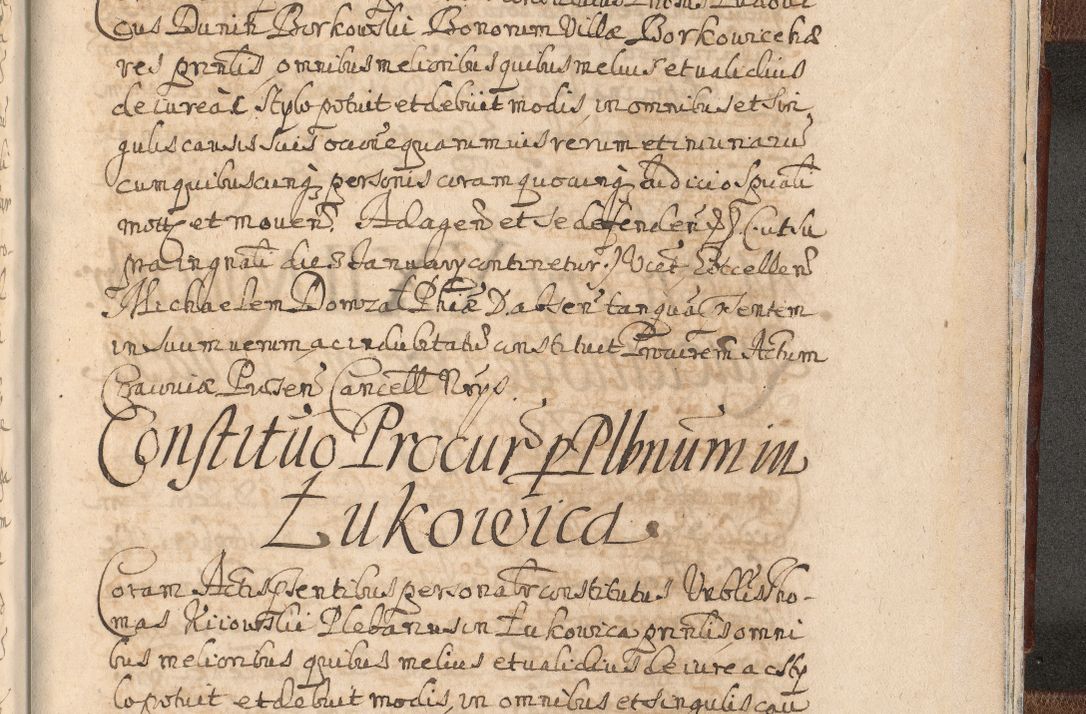 cus Dunin Borkowski Bonorum Villæ Borkowice hæ
res gnrlis, omnibus melioribus quibus melius et validius
de iure ac stylo potuit et debuit modis, in omnibus et sin,
gulis causis suis õcione quarumuis rerum et iniuriarũ
cum quibuscunq personis coram quocunq Judicio sp̃uali
mott et mouen Ad agen et se defenden (: ut su
pra in gnali die 3 Januarij continetur :) Excellen
Michaelem Dowzal Phiæ D. absen tanquã psentem
in suum uerum ac indubitatũ constituit Procurem Actum
Cracouiæ Præsen Cancell Nrijs.
Constituo Procur p Plbnum in
Łukowica.
Coram Actis psentibus personalr constitutus Vrblis Tho-
mas Kiiowski Plebanus in Łukowica gnrlis omni
bus melioribus quibus melius et validius de iure ac sty
lo potuit et debuit modis, in omnibus et singulis cau